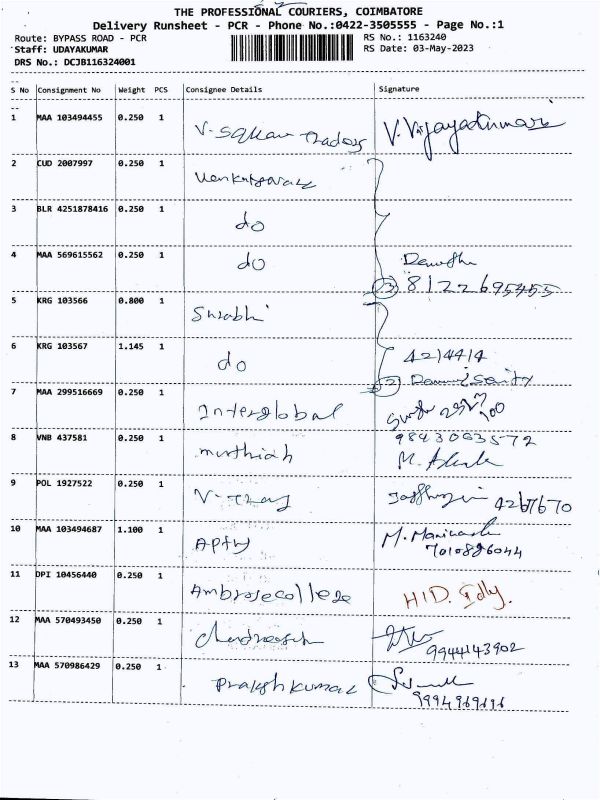 THE PROFESSIONAL COURIERS, COIMBATORE
Delivery Runsheet - PCR - Phone No.:0422-3505555 - Page No.:1
Route: BYPASS ROAD - PCR
RS No.: 1163240
Staff: UDAYAKUMAR
RS Date: 03-May-2023
DRS No.: DCJB116324001
S No Consignment No Weight PCS Consignee Details Signature
1 MAA 103494455 0.250 1 V-Square Traders V.Vijayakumari
2 CUD 2007997 0.250 1
3 BLR 4251878416 0.250 1 do
4 MAA 569615562 0.250 1 do
(3) 8122695455
5 KRG 103566 0.800 1 Surabhi
6 KRG 103567 1.145 1 do 4214414
(2)
7 MAA 299516669 0.250 1 Interglobal
8 VNB 437581 0.250 1 murthiah 9843003572
M.
9 POL 1927522 0.250 1 4267670
10 MAA 103494687 1.100 1 M.
7010896044
11 DPI 10456440 0.250 1 Ambrosecollege HID. Idly.
12 MAA 570493450 0.250 1 9944143902
13 MAA 570986429 0.250 1 Prakshkumar
9994969696